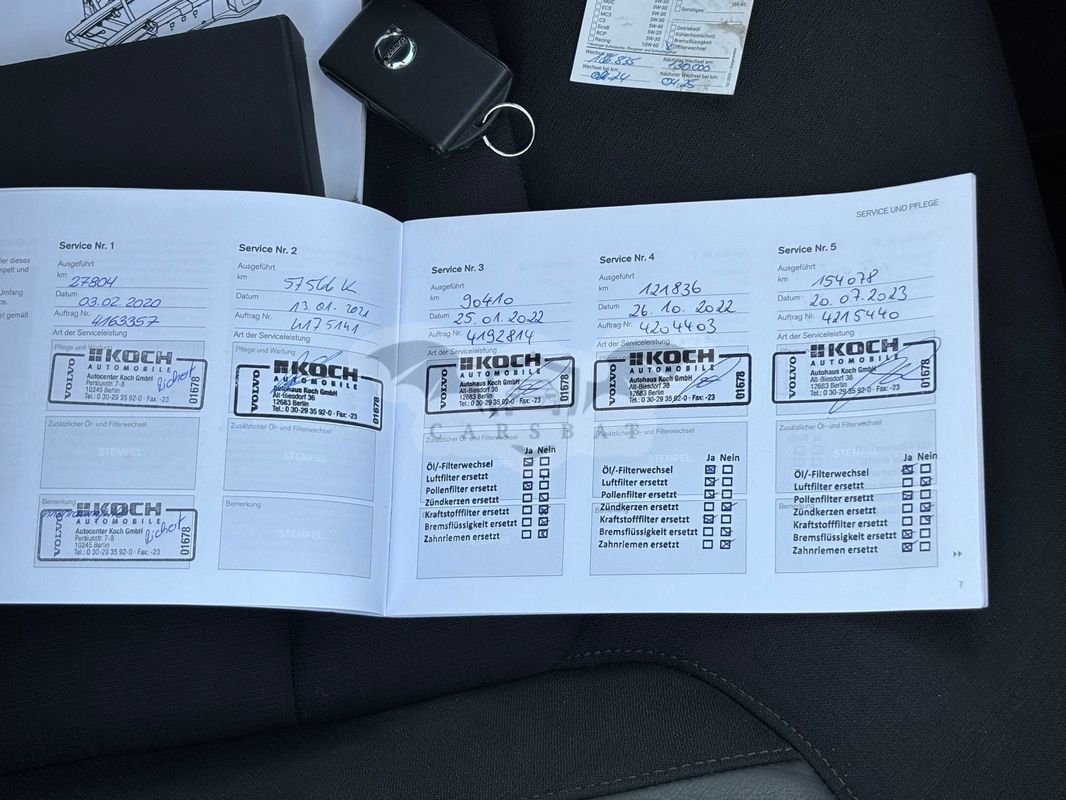 5W-30
ECS
MC3
C3
EcoB
RCP
Racing
5W-30
5W-40
5W-30
5W-30
10W-60
Sonstiges:
Getriebeöl
Kühlerfrostschutz
Bremsflüssigkeit
Ölfilterwechsel
Wechsel
Nächster Wechsel am:
130.000
Wechsel bei km:
Nächster Wechsel bei km:
04.24
04.25
SERVICE UND PFLEGE
Service Nr. 1
Ausgeführt
km 27804
Datum 03.02.2020
Auftrag Nr. 4163357
Art der Serviceleistung
Pflege und Wartung
VOLVO
KOCH
AUTOMOBILE
Autocenter Koch GmbH
Persiusstr. 7-8
10245 Berlin
Tel.: 0 30-29 35 92-0 · Fax: -23
01678
Zusätzlicher Öl- und Filterwechsel
STEMPEL
Bemerkung
VOLVO
KOCH
AUTOMOBILE
Autocenter Koch GmbH
Persiusstr. 7-8
10245 Berlin
Tel.: 0 30-29 35 92-0 · Fax: -23
01678
Service Nr. 2
Ausgeführt
km 57566 K
Datum 13.01.2021
Auftrag Nr. 4175141
Art der Serviceleistung
Pflege und Wartung
VOLVO
KOCH
AUTOMOBILE
Autohaus Koch GmbH
Alt-Biesdorf 36
12683 Berlin
Tel.: 0 30-29 35 92-0 · Fax: -23
01678
Zusätzlicher Öl- und Filterwechsel
STEMPEL
Bemerkung
STEMPEL
Service Nr. 3
Ausgeführt
km 90410
Datum 25.01.2022
Auftrag Nr. 4192814
Art der Serviceleistung
VOLVO
KOCH
AUTOMOBILE
Autohaus Koch GmbH
Alt-Biesdorf 36
12683 Berlin
Tel.: 0 30-29 35 92-0 · Fax: -23
01678
Zusätzlicher Öl- und Filterwechsel
Ja Nein
Öl/-Filterwechsel
Luftfilter ersetzt
Pollenfilter ersetzt
Zündkerzen ersetzt
Kraftstofffilter ersetzt
Bremsflüssigkeit ersetzt
Zahnriemen ersetzt
Service Nr. 4
Ausgeführt
km 121836
Datum 26.10.2022
Auftrag Nr. 4204403
Art der Serviceleistung
VOLVO
KOCH
AUTOMOBILE
Autohaus Koch GmbH
Alt-Biesdorf 36
12683 Berlin
Tel.: 0 30-29 35 92-0 · Fax: -23
01678
Zusätzlicher Öl- und Filterwechsel
Ja Nein
Öl/-Filterwechsel
Luftfilter ersetzt
Pollenfilter ersetzt
Zündkerzen ersetzt
Kraftstofffilter ersetzt
Bremsflüssigkeit ersetzt
Zahnriemen ersetzt
Service Nr. 5
Ausgeführt
km 154078
Datum 20.07.2023
Auftrag Nr. 4215440
Art der Serviceleistung
VOLVO
KOCH
AUTOMOBILE
Autohaus Koch GmbH
Alt-Biesdorf 36
12683 Berlin
Tel.: 0 30-29 35 92-0 · Fax: -23
01678
Zusätzlicher Öl- und Filterwechsel
Ja Nein
Öl/-Filterwechsel
Luftfilter ersetzt
Pollenfilter ersetzt
Zündkerzen ersetzt
Kraftstofffilter ersetzt
Bremsflüssigkeit ersetzt
Zahnriemen ersetzt
7
CARSBAT